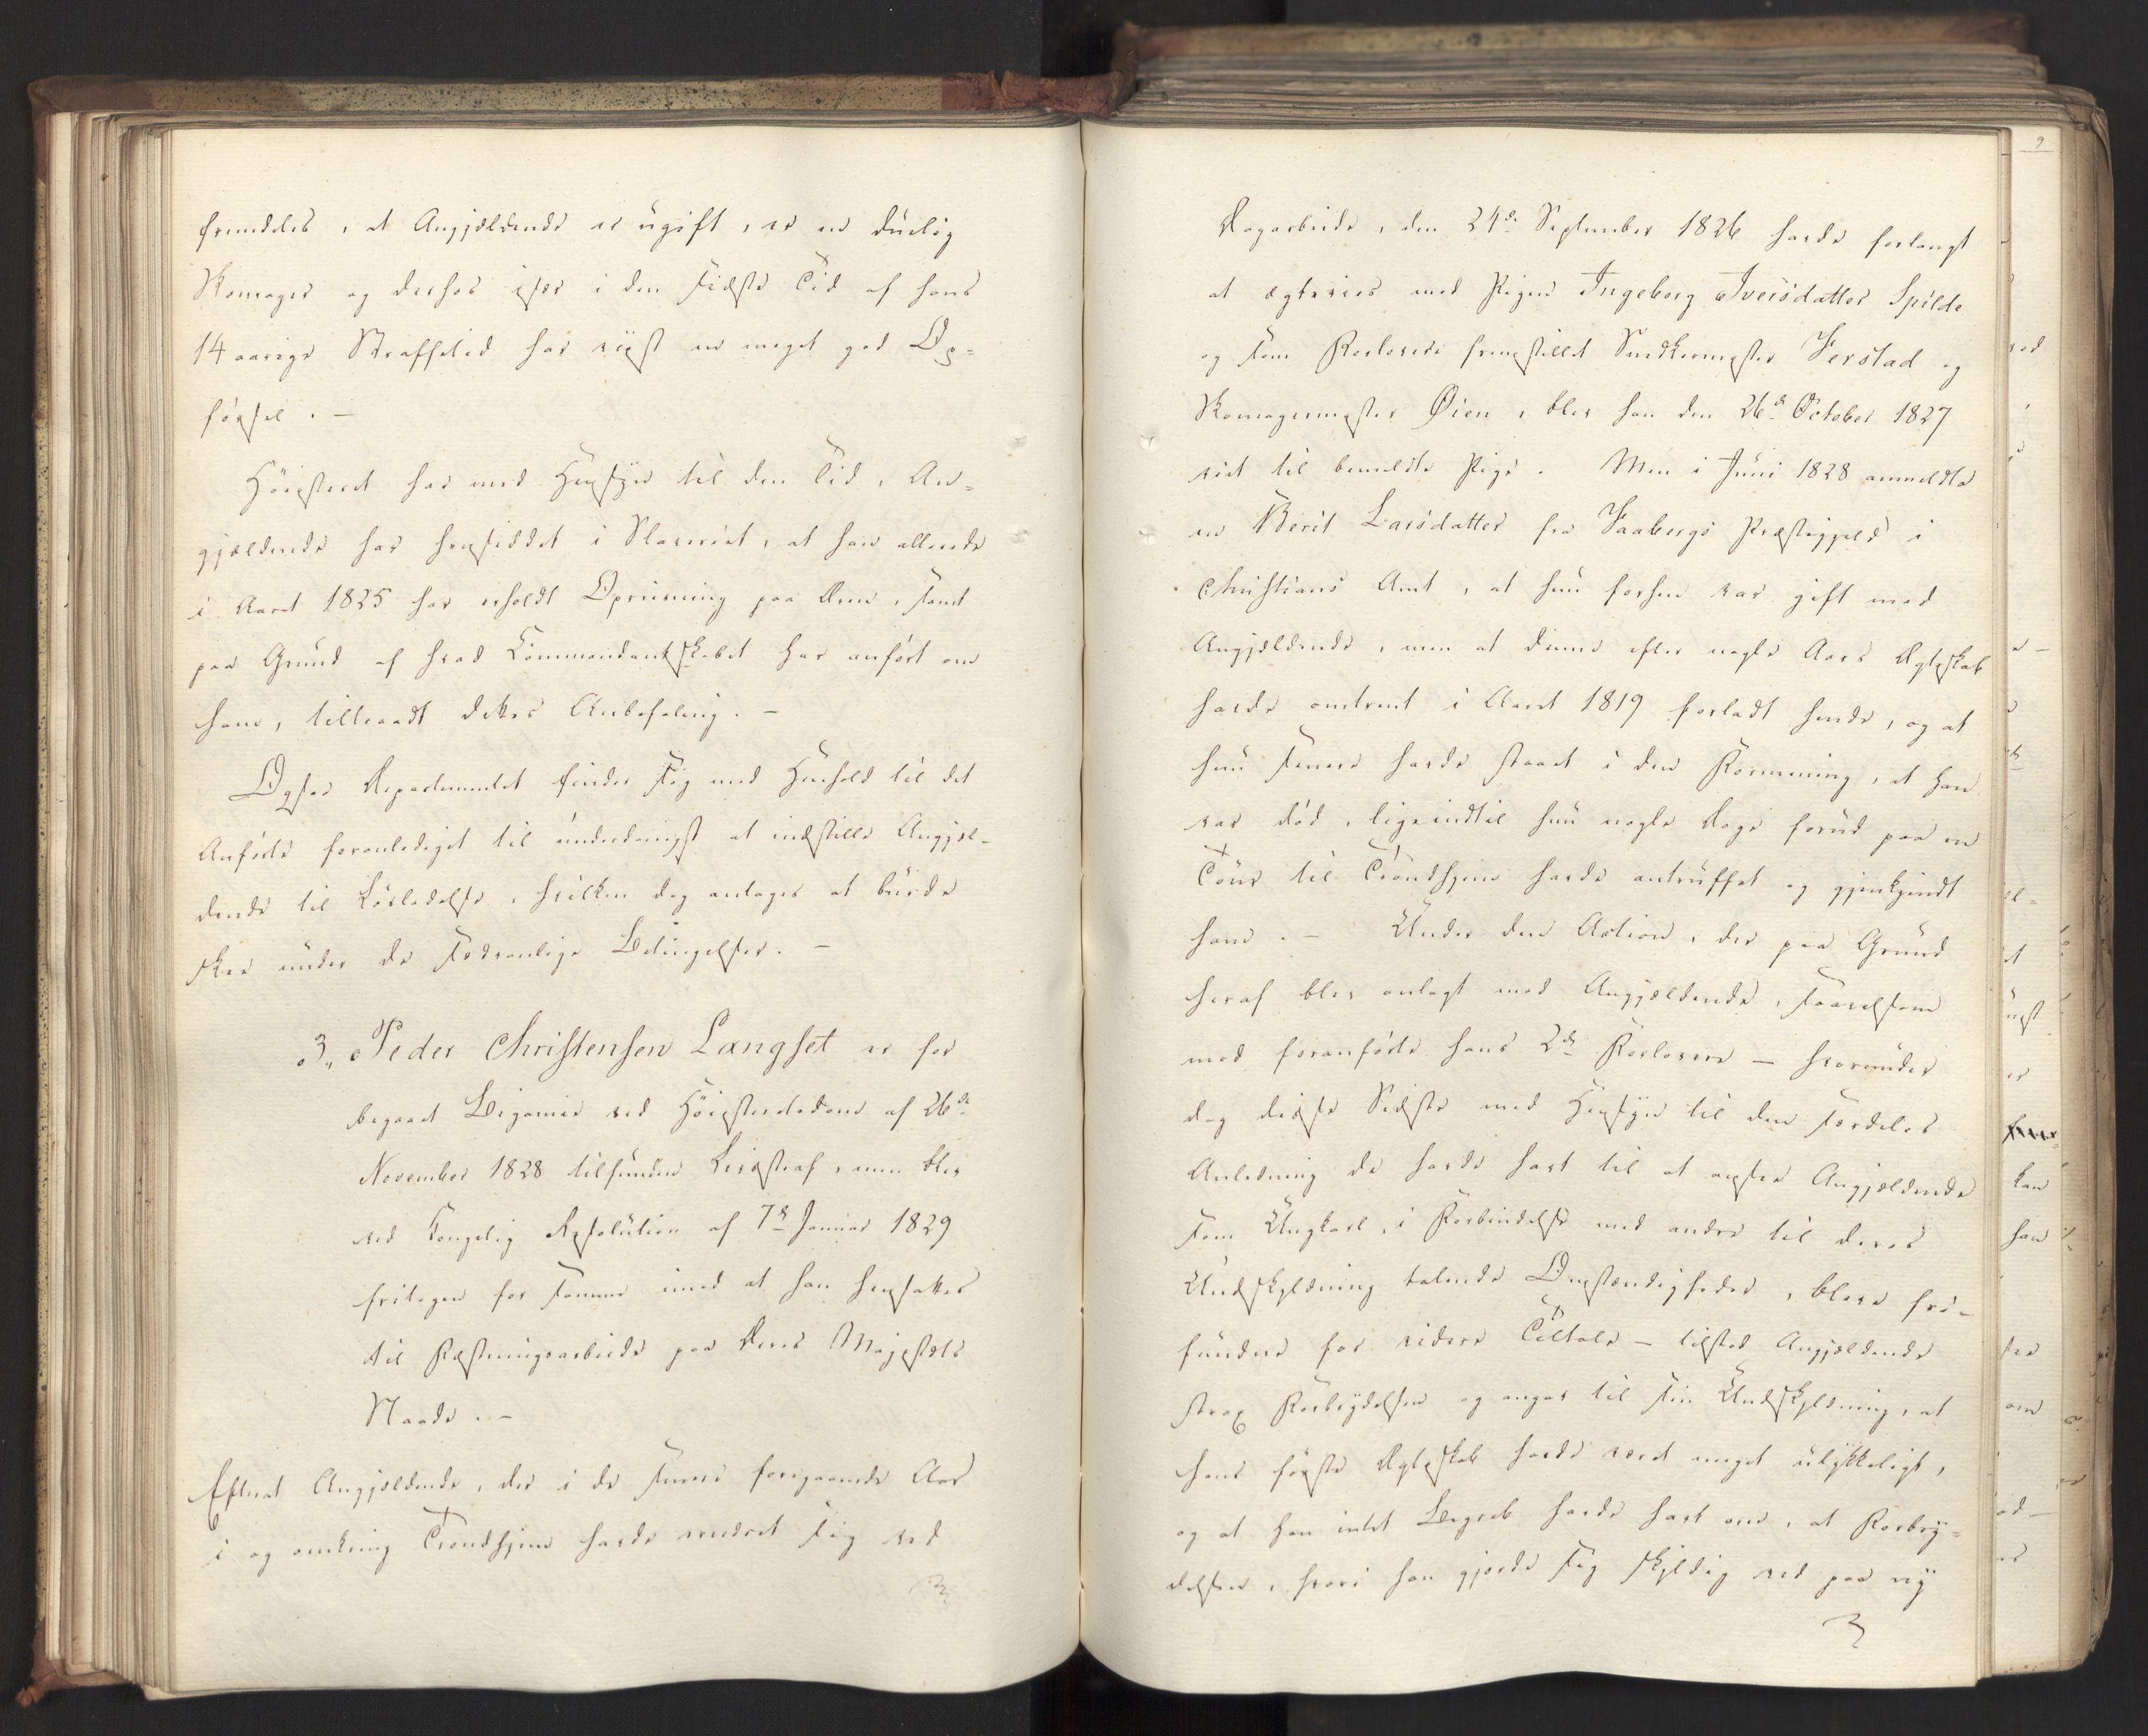 fremdeles, at Angjældende er ugift, er en duelig
Skomager og derhos især i den sidste Tid af hans
14 aarige Straffetid har viist en meget god Op-
førsel. -
Høiesteret har med Hensyn til den Tid, An-
gjældende har hensiddet i Slaveriet, at han allerede
i Aaret 1825 har erholdt Opreisning paa Æren, samt
paa Grund af hvad Commandantskabet har anført om
ham, tiltraadt dettes Anbefaling. -
Ogsaa Departementet finder sig med Henhold til det
Anførte foranlediget til underdanigst at indstille Angjæl-
dende til Løsladelse, hvilken dog antages at burde
skee under de sædvanlige Betingelser. -
3, Peder Christensen Langset er for
begaaet Bigamie ved Høiesteretsdom af 26de
November 1828 tilfunden Livsstraf, men blev
ved Kongelig Resolution af 7de Januar 1829
fritagen for samme imod at han hensattes
til Fæstningsarbeide paa Deres Majestæts
Naade. -
Efterat Angjældende, der i de senere foregaaende Aar
i og omkring Trondhjem havde ernæret sig ved
Dagarbeide, den 24de September 1826 havde forlangt
at ægtevies med Pigen Ingeborg Iversdatter Spilde
og som Forlovere fremstillet Snedkermester Ferstad og
Skomagermester Øien, blev han den 26de October 1827
viet til bemeldte Pige. Men i Juni 1828 anmeldte
en Berit Larsdatter fra Faabergs Præstegjeld i
Christians Amt, at hun forhen var gift med
Angjældende, men at denne efter nogle Aars Ægteskab
havde omtrent i Aaret 1819 forladt hende, og at
hun senere havde staaet i den Formening, at han
var død, ligeindtil hun nogle Dage forud paa en
Tour til Trondhjem havde antruffet og gjenkjendt
ham. - Under den Action, der paa Grund
heraf blev anlagt mod Angjældende, saavelsom
mod foranførte hans 2de Forlovere - hvorunder
dog disse Sidste med Hensyn til den særdeles
Anledning de havde havt til at ansee Angjældende
som Ungkarl, i Forbindelse med andre til deres
Undskyldning talende Omstændigheder, bleve fri-
fundne for videre Tiltale - tilstod Angjældende
strax Forbrydelsen og angav til sin Undskyldning, at
hans første Ægteskab havde været meget ulykkeligt,
og at han intet Begreb havde havt om, at Forbry-
delsen, hvori han gjorde sig skyldig ved paa ny